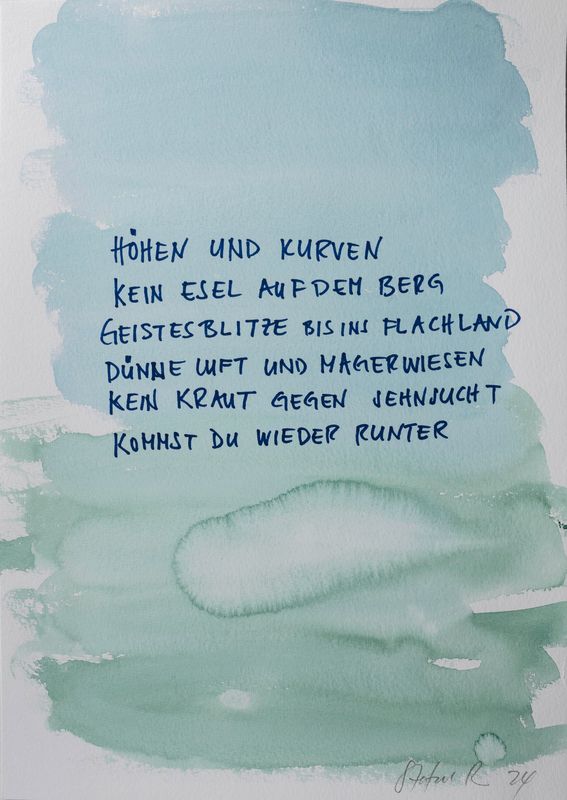 HÖHEN UND KURVEN
KEIN ESEL AUF DEM BERG
GEISTESBLITZE BIS INS FLACHLAND
DÜNNE LUFT UND MAGERWIESEN
KEIN KRAUT GEGEN SEHNSUCHT
KOMMST DU WIEDER RUNTER
R 24